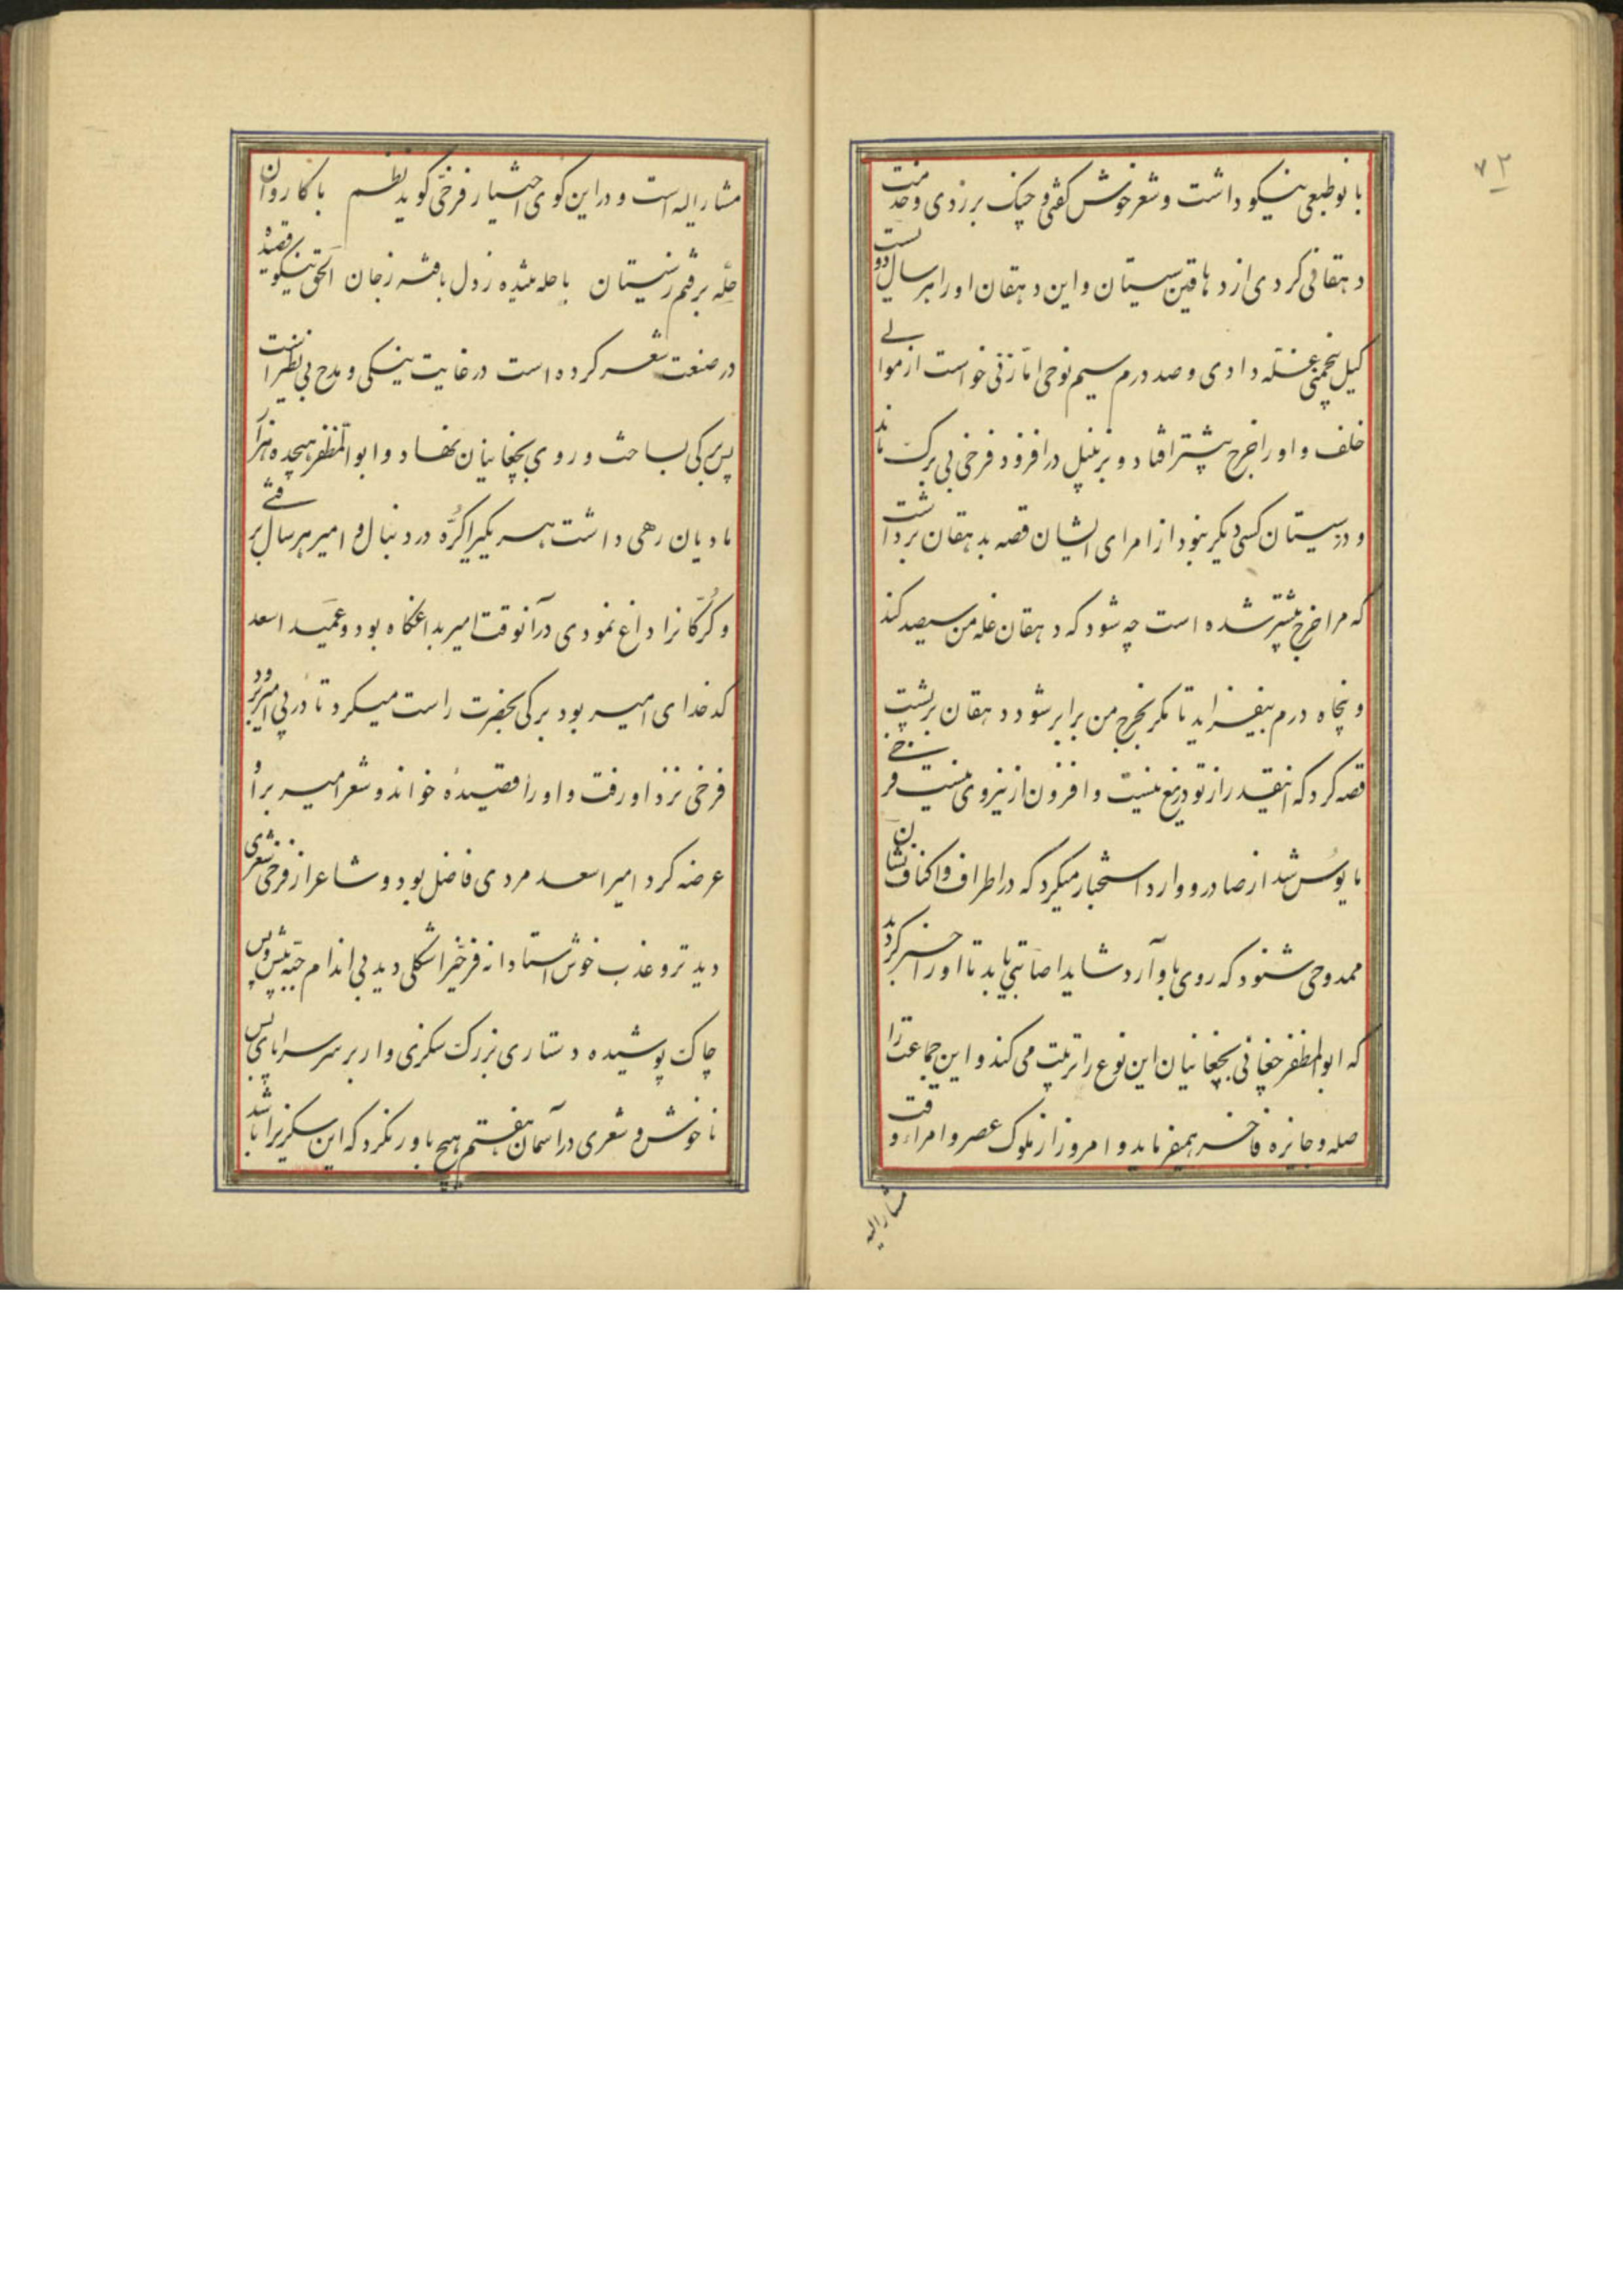 ۷۲
بانو طبعی نیکو داشت و شعر خوش گفتی و چنک بر زدی و خدمت
دهقانی کردی از دهاقین سیستان و این دهقان اورا هر سال دویست
کیل پنجمنی غله دادی و صد درم سیم نوحی اما زنی خواست از موالی
خلف و اورا خرج بیشتر افتاد و زنبیل در افزود فرخی بی برک ماند
و در سیستان کسی دیکر نبود از امرای ایشان قصه بدهقان برداشت
که مرا خرج بیشتر شده است چه شود که دهقان غله من سیصد کند
و پنجاه درم بیفزاید تا مکر بخرج من برابر شود دهقان بر پشت
قصه کرد که اینقدر از تو دریغ نیست و افزون از نیروی نیست فرخی
مایوس شد از صادر و وارد استخبار میکرد که در اطراف و اکناف نشان
ممدوحی شنود که روی باو آرد شاید اصابتی یابد تا اورا خبر کردند
که ابوالمظفر چغانی بچغانیان این نوع را تربیت می کند و این جماعت را
صله و جایزه فاخر همیفرماید و امروز از ملوک عصر و امراء وقت
مشارالیه
مشارالیه است و در این کوی اختیار فرخی کوید نظم با کاروان
حله برفتم ز سیستان با حله تنیده ز دل بافته ز جان الحق نیکو قصیده
در صنعت شعر کرده است در غایت نیکی و مدح بی نظیر است
پس برکی بساخت و روی بچغانیان نهاد و ابوالمظفر هیجده هزار
مادیان رهی داشت هر یکیرا کره در دنبال و امیر هر سال برفتی
و کرکانرا داغ نمودی در آنوقت امیر بداغکاه بود و عمید اسعد
کدخدای امیر بود برکی بحضرت راست میکرد تا در پی امیر برد
فرخی نزد او رفت و اورا قصیدۀ خواند و شعر امیر بر او
عرضه کرد امیر اسعد مردی فاضل بود و شاعر از فرخی شعری
دید تر و عذب خوش استادانه فرخیرا شکلی دید بی اندام جبه پیش و پس
چاک پوشیده دستاری بزرک سکزی وار بر سر سراپای پس
ناخوش و شعری در آسمان هفتم هیچ باور نکرد که این سکزیرا باشد